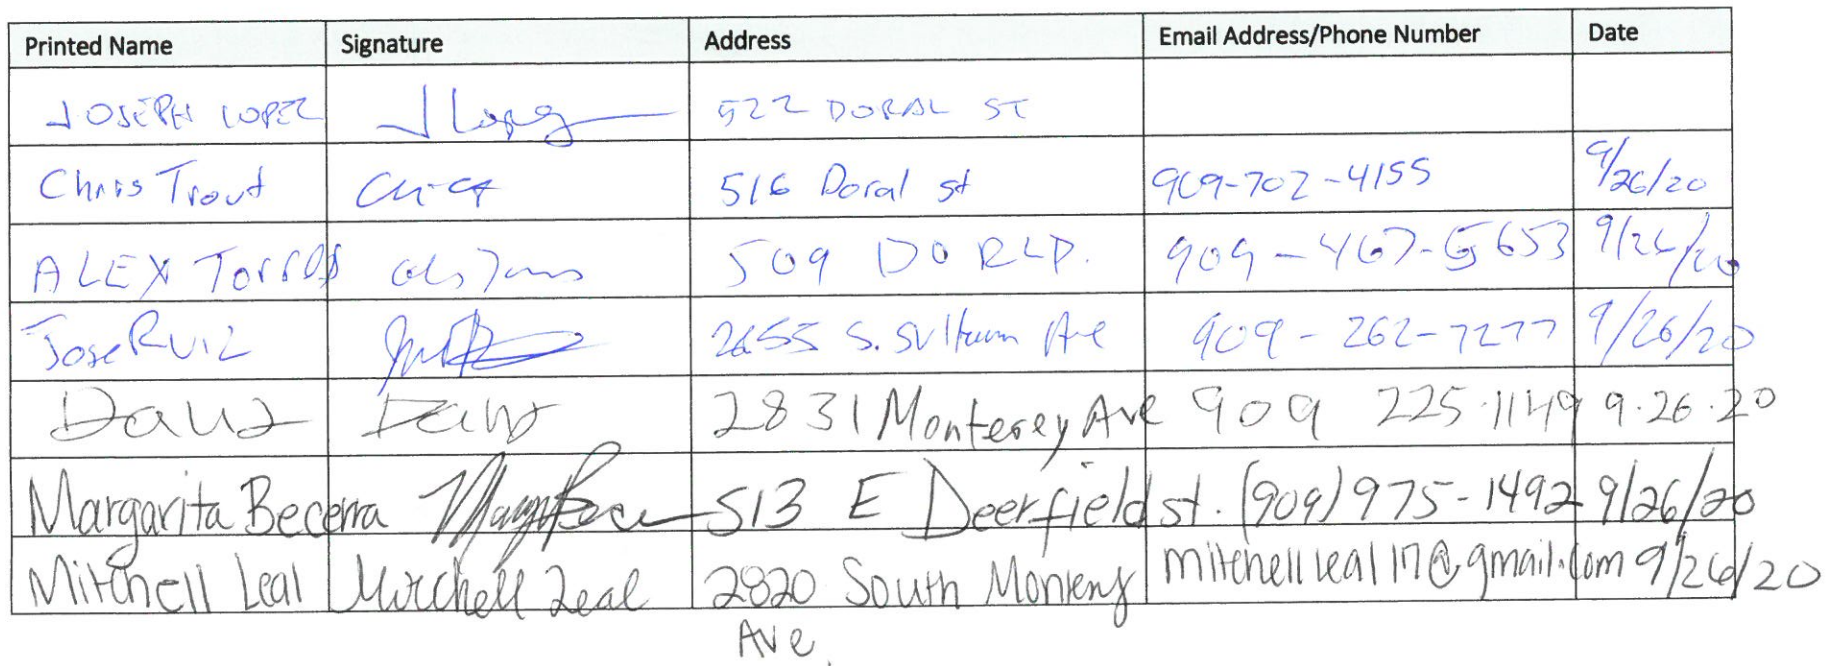 Printed Name Signature Address Email Address/Phone Number Date
JOSEPH LOPEZ J Lopez 522 DORAL ST
Chris Trout 516 Doral st 909-702-4155 9/26/20
ALEX Torres 509 DORLD. 909-467-5653 9/26/20
Jose Ruiz 2655 S. Sultana Ave 909-262-7277 9/26/20
2831 Monterey Ave 909 225-1149 9.26.20
Margarita Becerra 513 E Deerfield st. (909) 975-1492 9/26/20
Mitchell Leal Mitchell Leal 2820 South Monterey mitchellleal17@gmail.com 9/26/20
Ave.